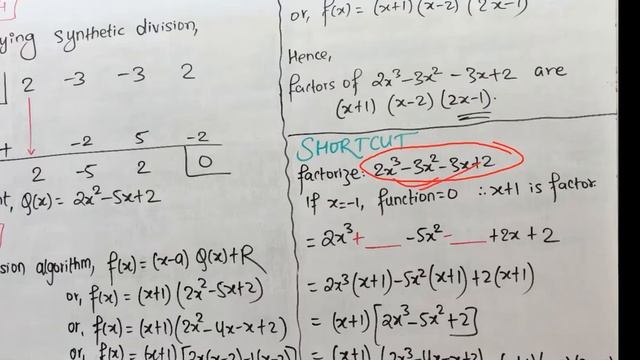 ying synthetic division,
2 -3 -3 2
+ -2 5 -2
2 -5 2 0
nt, Q(x) = 2x²-5x+2
sion algorithm, f(x) = (x-a) Q(x)+R
or, f(x) = (x+1) (2x²-5x+2)
or, f(x) = (x+1) (2x²-4x-x+2)
or, f(x) = (x+1) [2x(x-2)-1(x-2)]
or, f(x) = (x+1) (x-2) (2x-1)
Hence,
factors of 2x³-3x²-3x+2 are
(x+1) (x-2) (2x-1).
SHORTCUT
factorize: 2x³-3x²-3x+2
If x=-1, function=0 ∴ x+1 is factor.
= 2x³ + ___ -5x² - ___ +2x + 2
= 2x³(x+1)-5x²(x+1)+2(x+1)
= (x+1) [2x³-5x²+2]
= (x+1) (2x³-4x-x+2)